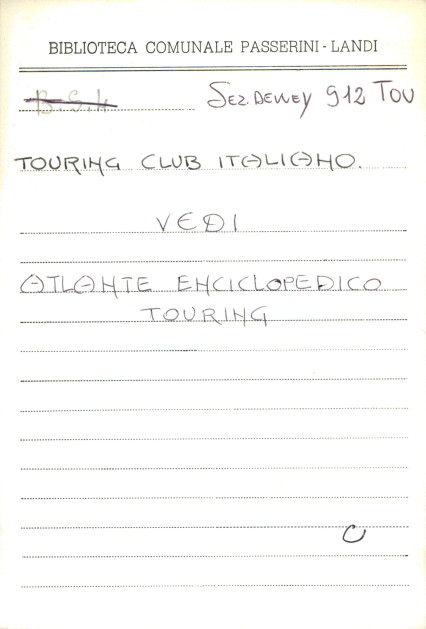 BIBLIOTECA COMUNALE PASSERINI - LANDI
B.S.4 Sez. Dewey 912 TOU
TOURING CLUB ITALIANO.
VEDI
ATLANTE ENCICLOPEDICO
TOURING
C